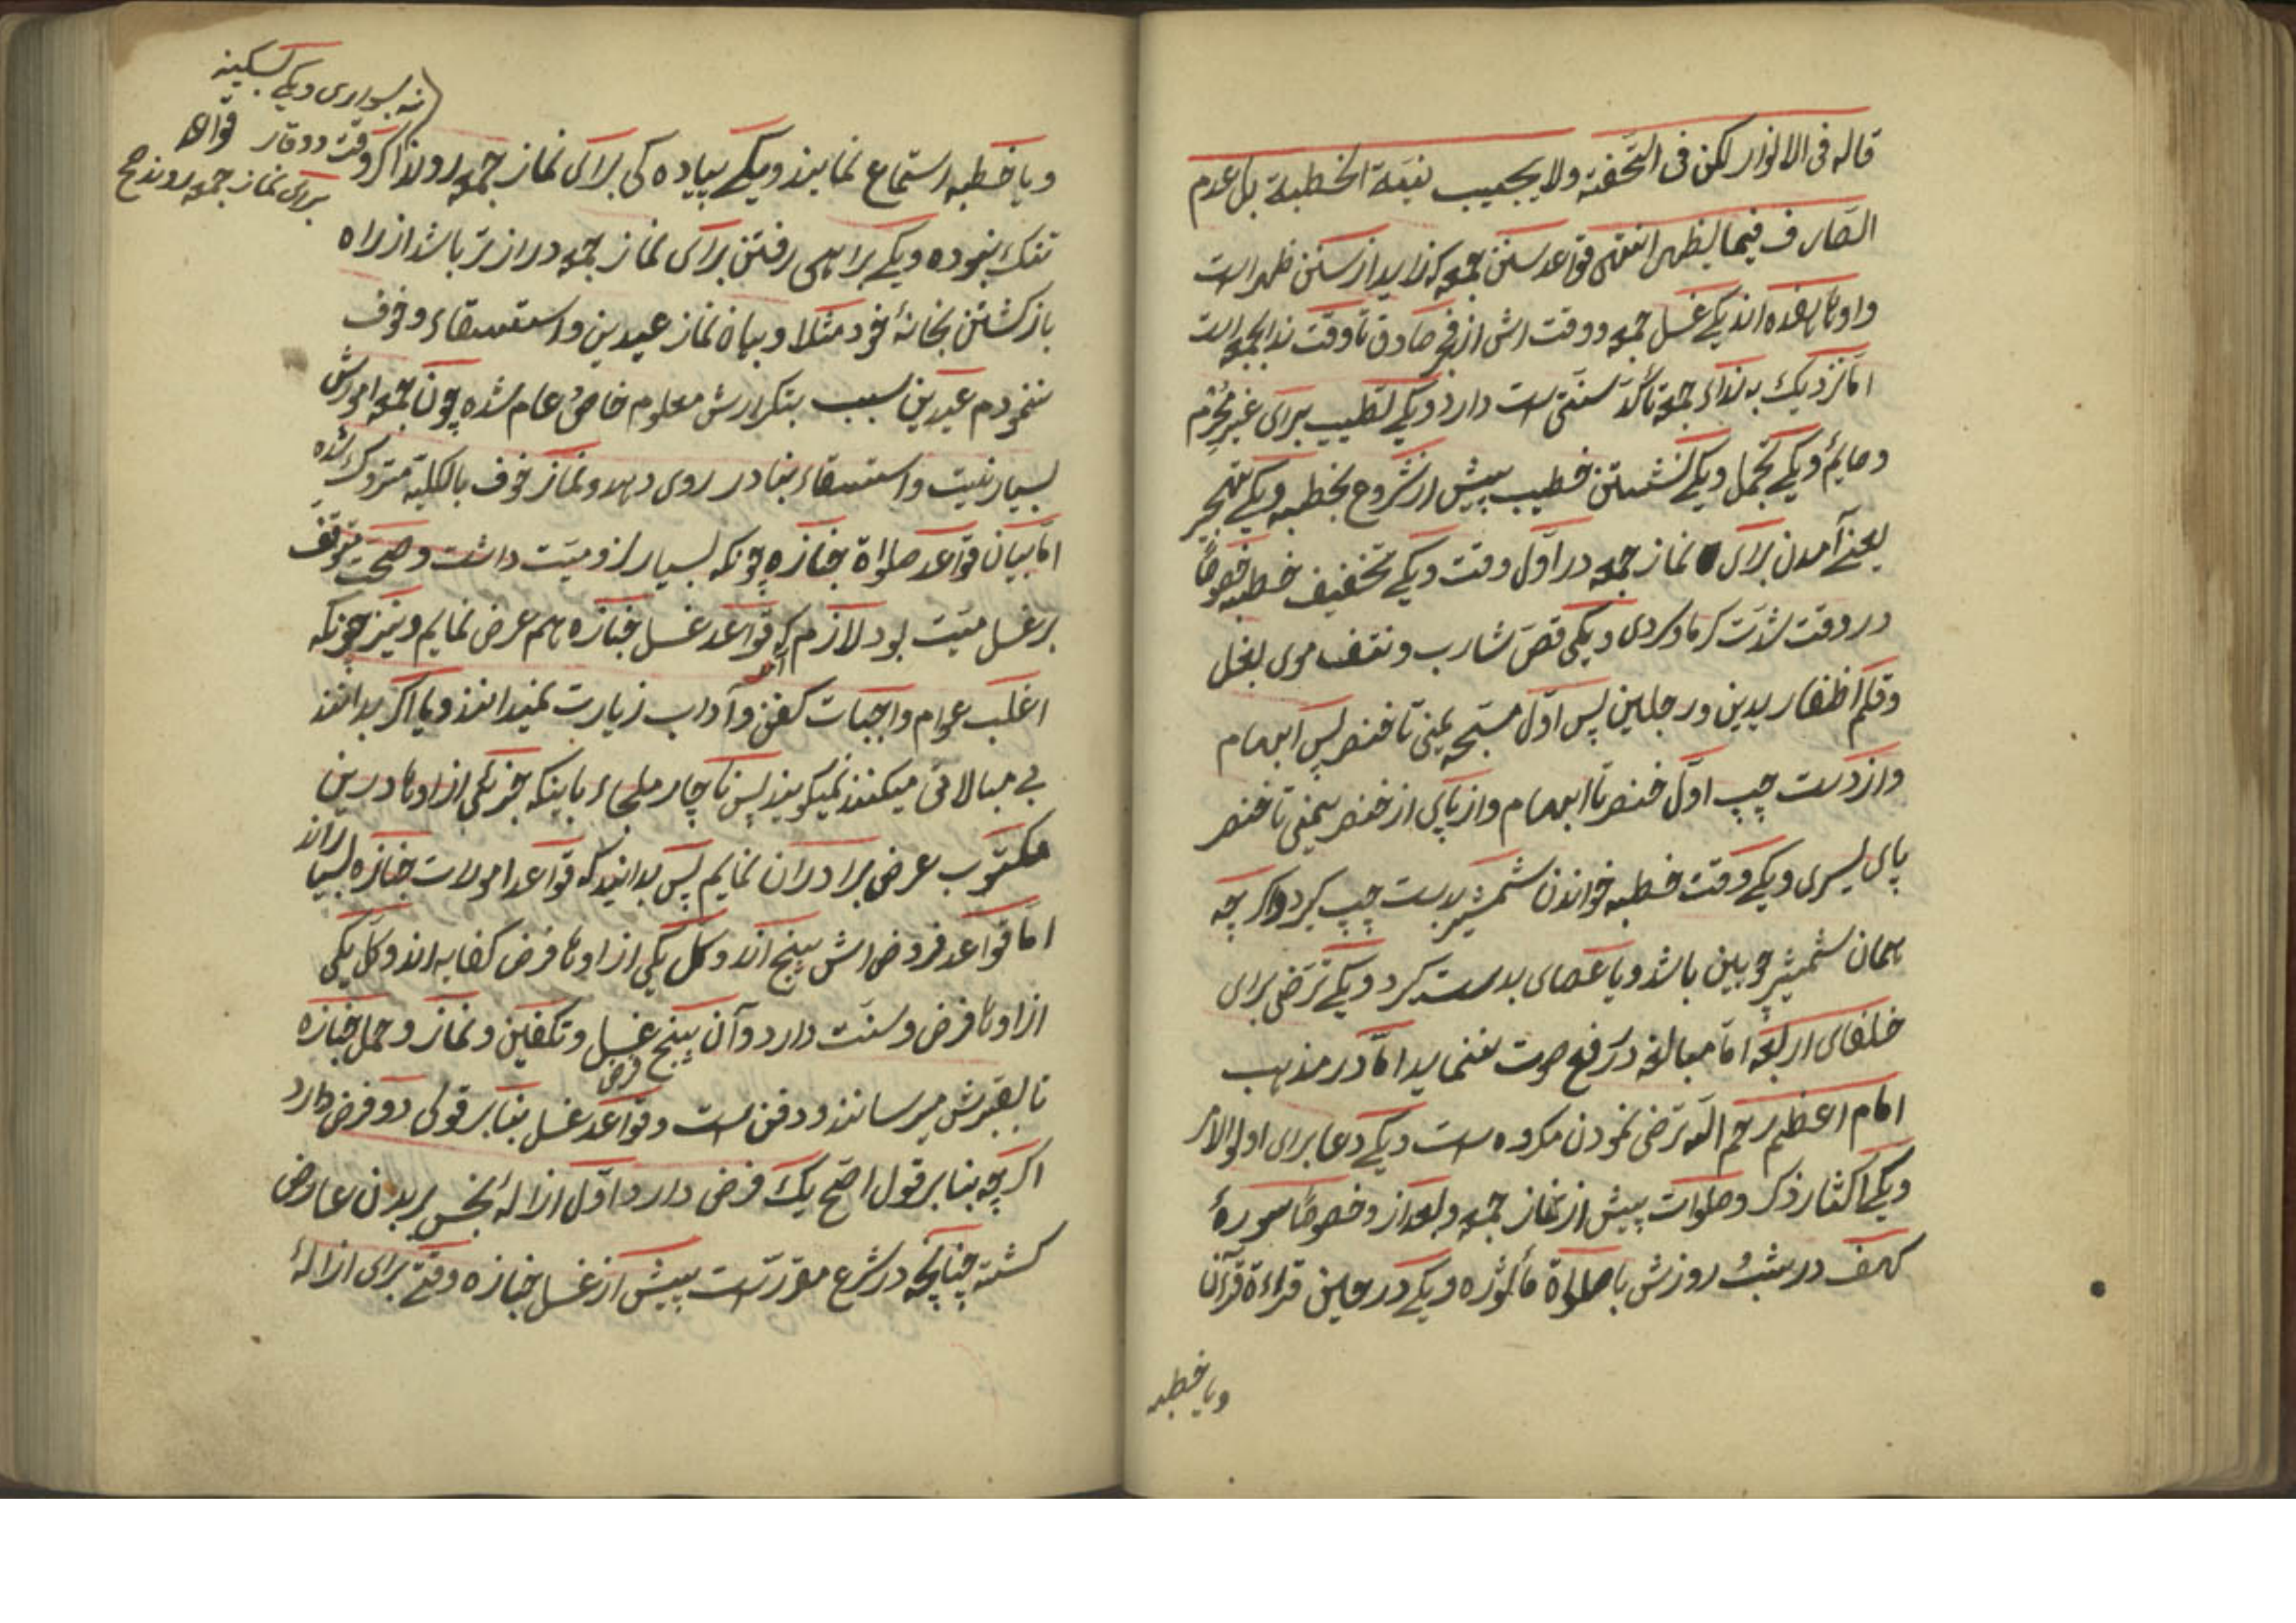 قاله فی الانوار لکن فی التحفة ولا یجب نیة الخطبة بل عدم
الصارف فیما یظهر انتهی قواعد سنن جمعه که زاید از سنن ظهر است
و اوها هفده اند یکی غسل جمعه و وقت اش از فجر صادق تا وقت ندا جمعه است
اما نزدیک به ندای جمعه تاکد سنتی است دارد و یکی تطییب برای غیر محرم
و صایم و یکی تجمل و یکی نشستن خطیب پیش از شروع بخطبه و یکی تبکیر
یعنی آمدن برای نماز جمعه در اول وقت و یکی تخفیف خطبه خصوصاً
در وقت شدت گرما و سردی و یکی قص شارب و نتف موی بغل
و قلم اظفار یدین و رجلین پس اول مسبحه یمنی تا خنصر پس ابهام
و از دست چپ اول خنصر تا ابهام و از پای از خنصر یمنی تا خنصر
پای یسری و یکی وقت خطبه خواندن شمشیر بدست چپ گیرد و اگر چه
همان شمشیر چوبین باشد و یا عصای بدست گیرد و یکی ترضی برای
خلفای اربعه اما مبالغه در رفع صوت ننماید اما در مذهب
امام اعظم رحم الله ترضی نمودن مکروه است و یکی دعا برای اولوالامر
و یکی اکثار ذکر و صلوات پیش از نماز جمعه و بعد از و خصوصاً سورهٔ
کهف در شب و روزش با صلواة مأثوره و یکی در عین قراءة قرآن
و یا خطبه
و یا خطبه استماع نمایند و یکی پیاده کی برای نماز جمعه روند اگر وقت
نه بسواری و یکی بسکینه
و وقار
برای نماز جمعه روند صح
تنک نبوده و یکی براهی رفتن برای نماز جمعه دراز تر باشد از راه
بازکشتن بخانهٔ خود مثلا و بیان نماز عیدین و استسقاء و خوف
ننمودم عیدین سبب بتکرارش معلوم خاص و عام شده چون جمعه امورش
بسیار نیست و استسقاء بنادر روی دهد و نماز خوف بالکلیة متروک شده
اما بیان قواعد صلواة جنازه چونکه بسیار لزومیت داشت و صحت موقف
بر غسل میت بود لازم که قواعد غسل جنازه هم عرض نمایم و نیز چونکه
اغلب عوام واجبات کفن و آداب زیارت نمیدانند و یا اگر بدانند
بی مبالاتی میکنند نمیکویند پس ناچار ملجاء باینکه چیزیکی از اوها درین
مکتوب عرض برادران نمایم پس بدانید که قواعد امورات جنازه بسیار اند
اما قواعد فروض اش پنج اند و کل یکی از اوها فرض کفایه اند و کل یکی
از اوها فرض و سنت دارد و آن پنج فرض غسل و تکفین و نماز و حمل جنازه
تا بقبرش میرسانند و دفن است و قواعد غسل بنابر قولی دو فرض دارد
اگر چه بنابر قول اصح یک فرض دارد اول ازالهٔ نجس بر بدن عارض
کشته چنانچه در شرع مقرر است پیش از غسل جنازه وقتی برای ازالهٔ